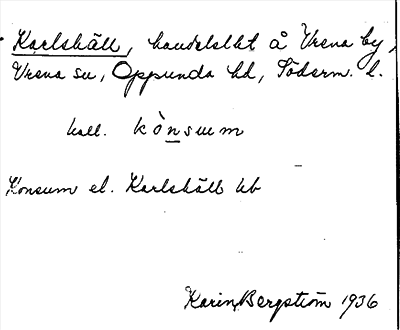 Karlshäll, handelslht å Vrena by,
Vrena sn, Oppunda hd, Söderm. l.
kall. kònsum
Konsum el. Karlshäll hb
Karin Bergström 1936